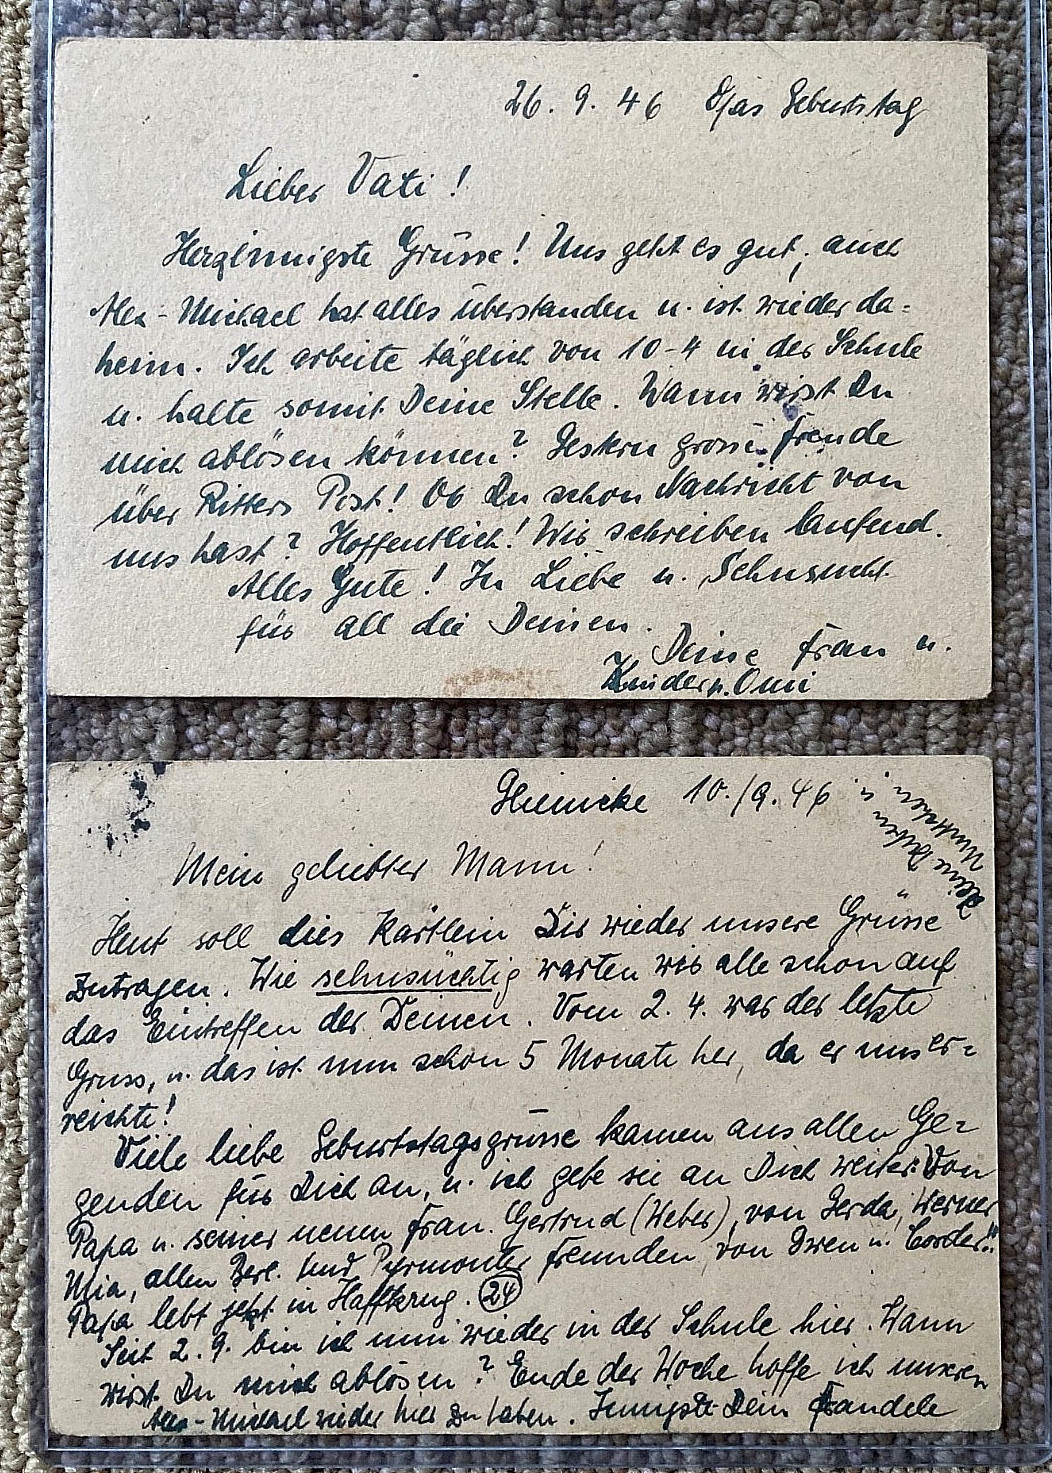 26. 9. 46 Geburtstag
Lieber Vati!
Herzinnigste Grüsse! Uns geht es gut, auch
Alex-Michael hat alles überstanden u. ist wieder da=
heim. Ich arbeite täglich von 10-4 in der Schule
u. halte somit Deine Stelle. Wann wirst Du
mich ablösen können? Gestern grosse Freude
über Ritters Post! Ob Du schon Nachricht von
uns hast? Hoffentlich! Wir schreiben laufend.
Alles Gute! In Liebe u. Sehnsucht
für all die Deinen.
Deine Frau u.
Kinder u. Omi
10./9. 46
Mein geliebter Mann!
Heut soll dies Kärtlein Dir wieder unsere Grüsse
zutragen. Wie sehnsüchtig warten wir alle schon auf
das Eintreffen der Deinen. Vom 2. 4. war der letzte
Gruss, u. das ist nun schon 5 Monate her, da er uns er=
reichte!
Viele liebe Geburtstagsgrüsse kamen aus allen Ge=
genden für Dich an, u. ich gebe sie an Dich weiter. Von
Papa u. seiner neuen Frau Gertrud (Weber), von Gerda, Werner
Mia, allen Berl. und Pyrmonter Freunden, von u.
Papa lebt jetzt in Haffkrug. 24
Seit 2. 9. bin ich nun wieder in der Schule hier. Wann
wirst Du mich ablösen? Ende der Woche hoffe ich unseren
Alex-Michael wieder hier zu haben. Innigst Dein